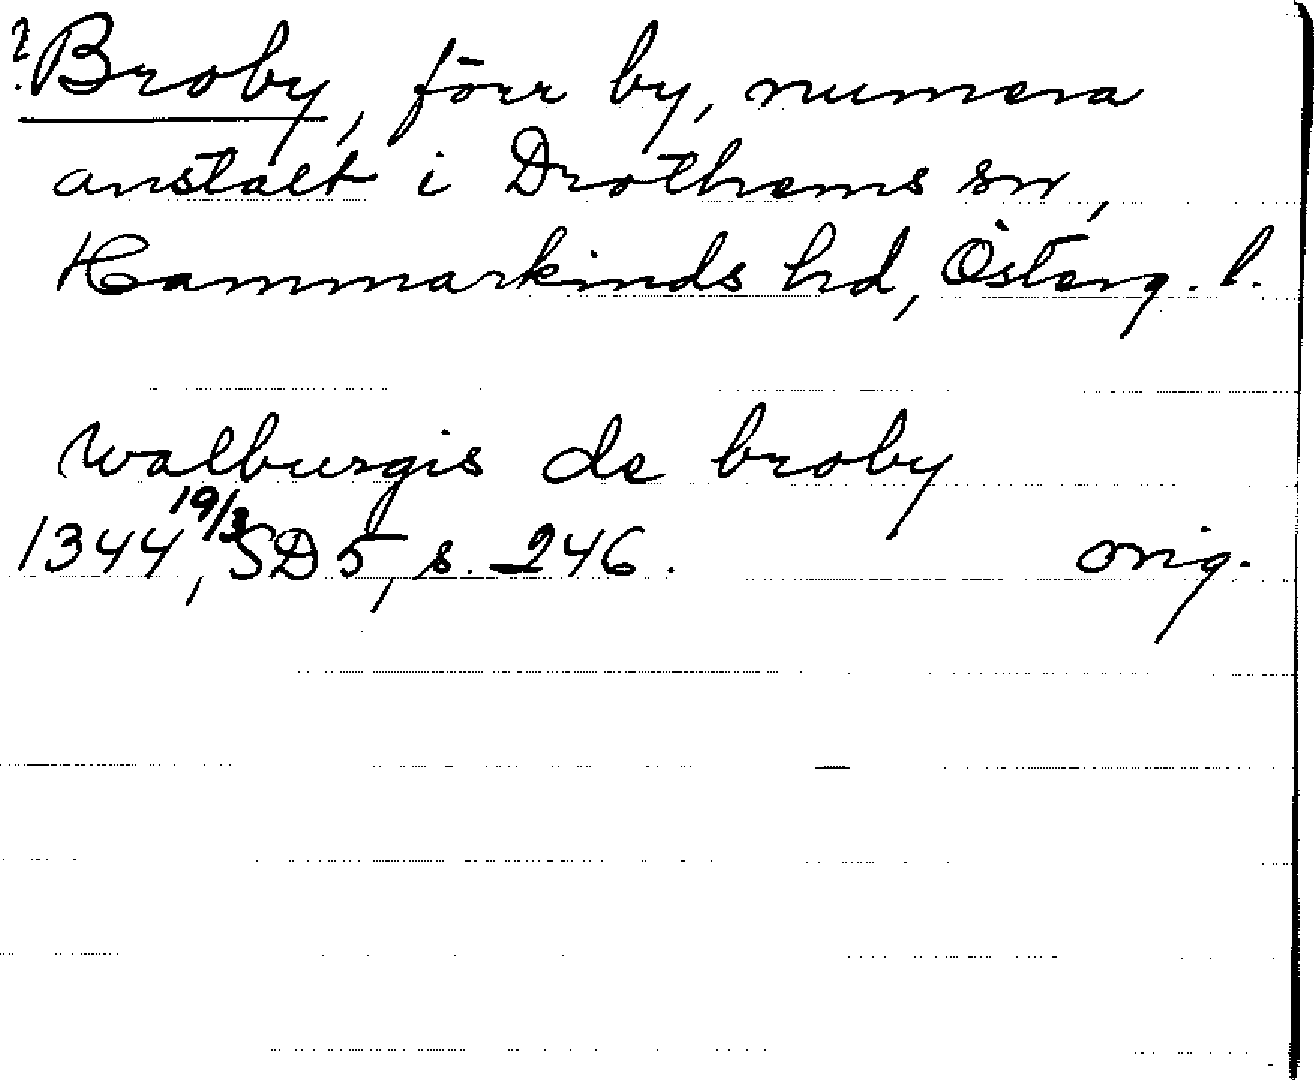 ? Broby, förr by, numera
anstalt i Drothems sn,
Hammarkinds hd, Österg. l.
Walburgis de broby
1344 19/3, SD 5, s. 246. orig.